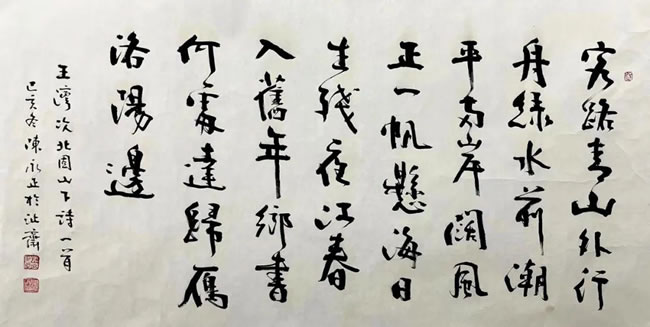 客路青山外行
舟綠水前潮
平兩岸闊風
正一帆懸海日
生殘夜江春
入舊年鄉書
何處達歸雁
洛陽邊
王灣次北固山下詩一首
己亥冬陳永正於沚齋